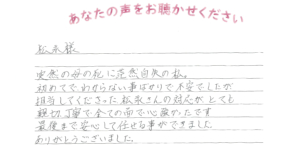 あなたの声をお聴かせください
松永様
突然の母の死に茫然自失の私。
初めてでわからない事ばかりで不安でしたが
担当してくださった松永さんの対応がとても
親切丁寧で全ての面で心強かったです
最後まで安心して任せる事ができました
ありがとうございました。